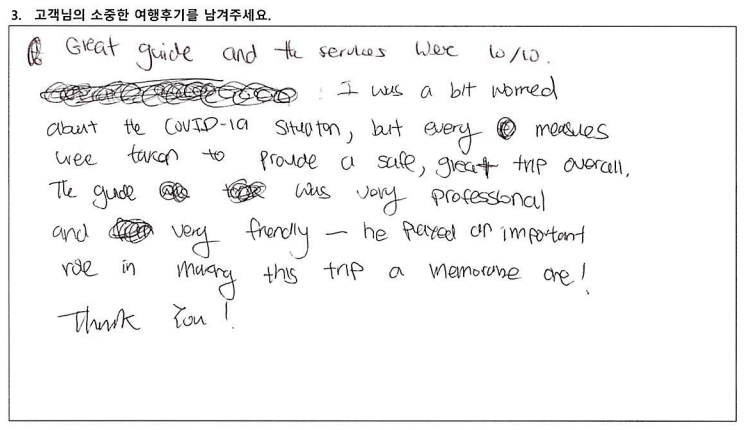 3. 고객님의 소중한 여행후기를 남겨주세요.
Great guide and the services were 10/10.
I was a bit worried
about the COVID-19 situation, but every measures
were taken to provide a safe, great trip overall.
The guide was very professional
and very friendly — he played an important
role in making this trip a memorable one!
Thank You!